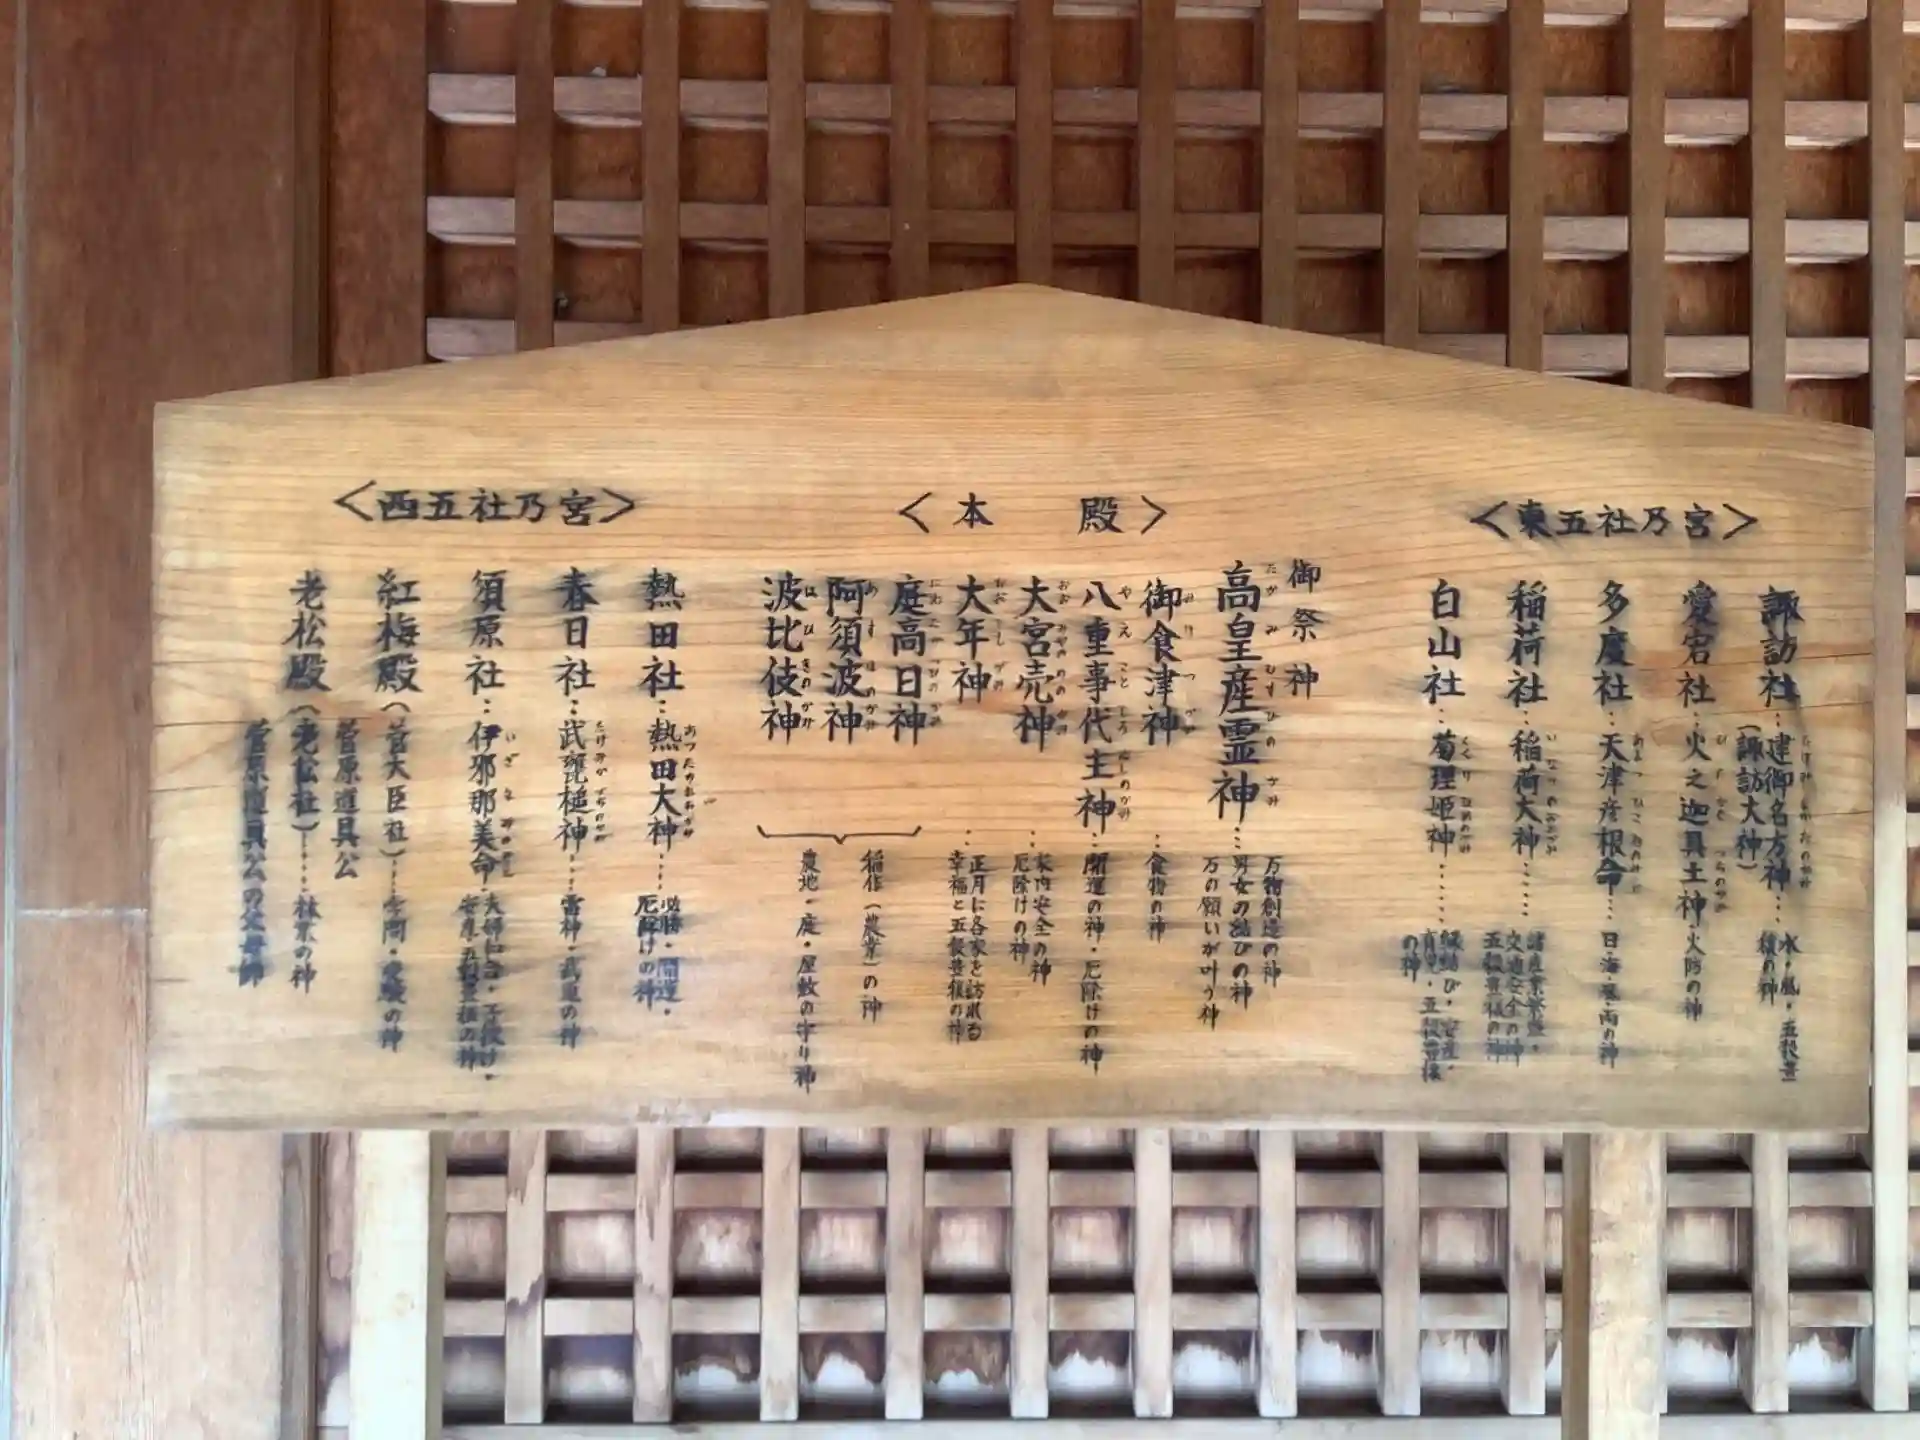 ＜東五社乃宮＞
諏訪社…建御名方神…水・風・五穀豊穣の神
（諏訪大神）
愛宕社…火之迦具土神・火防の神
多度社…天津彦根命…日・海・風・雨の神
稲荷社…稲荷大神……諸産業繁盛・交通安全の神
五穀豊穣の神
白山社…菊理姫神……縁結び・安産・育児・五穀豊穣の神
＜本殿＞
御祭神
高皇産霊神…万物創造の神
男女の結びの神
万の願いが叶う神
御食津神…食物の神
八重事代主神…開運の神・厄除けの神
大宮売神…家内安全の神
厄除けの神
大年神…正月に各家を訪れる
幸福と五穀豊穣の神
庭高日神
阿須波神
波比伎神
稲作（農業）の神
農地・庭・屋敷の守り神
＜西五社乃宮＞
熱田社…熱田大神…必勝・開運・厄除けの神
春日社…武甕槌神…雷神・武道の神
須原社…伊邪那美命・夫婦和合・子授け・安産・五穀豊穣の神
紅梅殿（菅大臣社）…学問・受験の神
菅原道真公
老松殿（老松社）…林業の神
菅原道真公の父母神